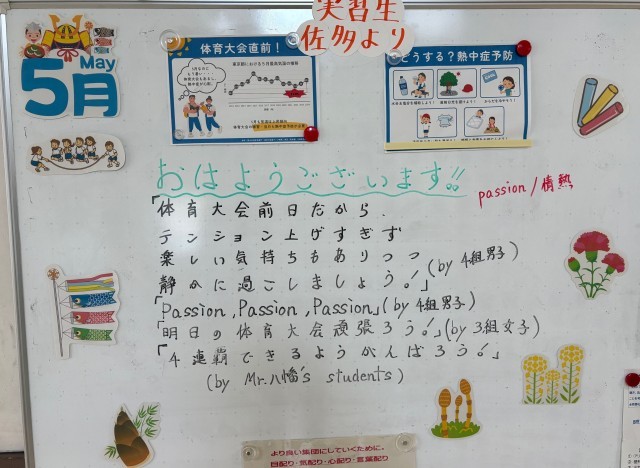 実習生
佐多より
May
5月
体育大会直前！
どうする？熱中症予防
おはようございます!!
passion/情熱
「体育大会前日だから、
テンション上げすぎず
楽しい気持ちもありつつ
静かに過ごしましょう！」(by 4組男子)
「Passion, Passion, Passion」(by 4組男子)
「明日の体育大会頑張ろう！」(by 3組女子)
「4連覇できるようがんばろう！」
(by Mr.八幡's students)
より良い集団にしていくために。
目配り・気配り・心配り・言葉配り